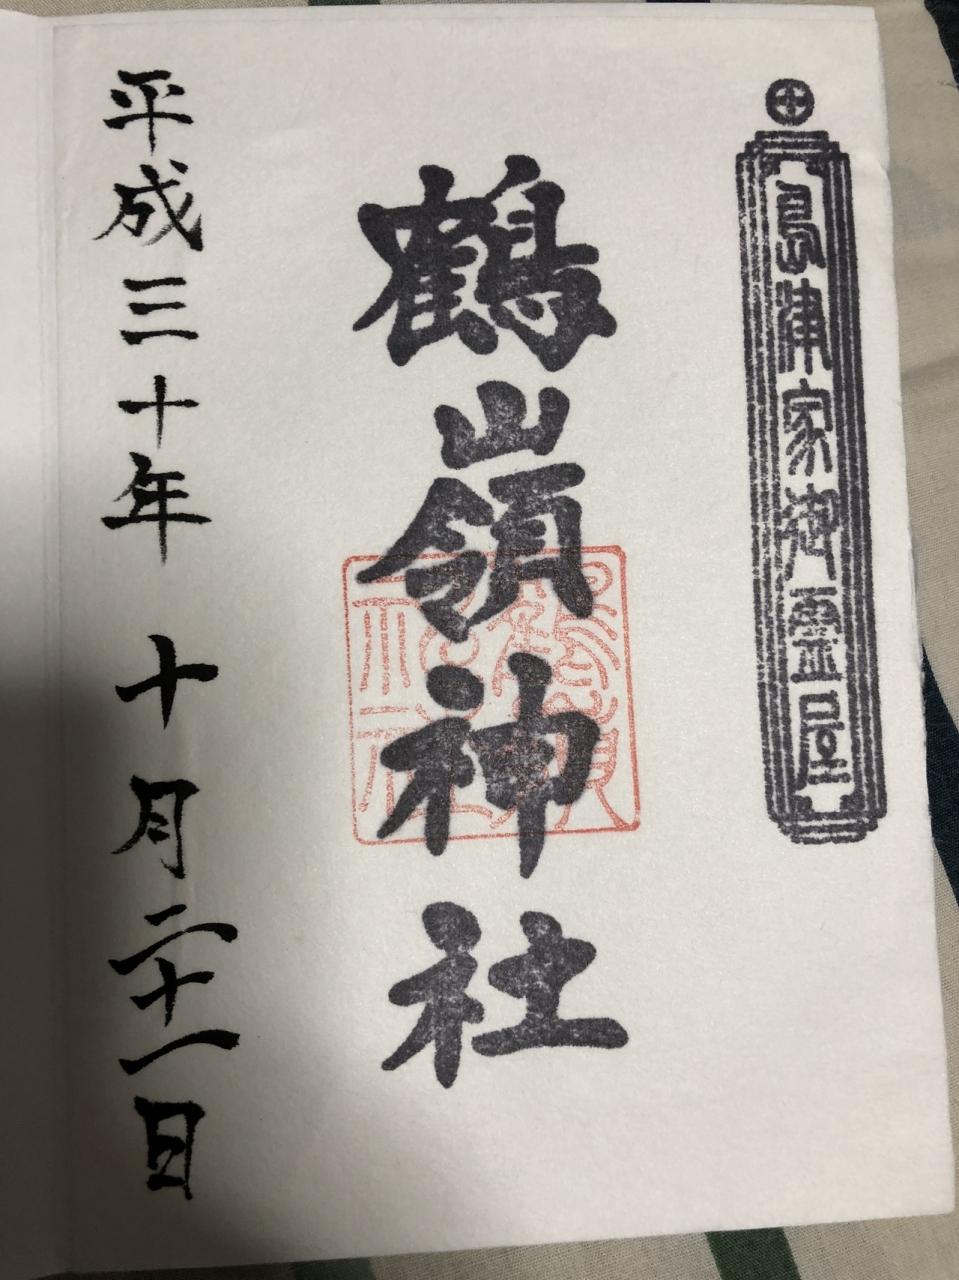 島津家御霊屋
鶴嶺神社
平成三十年 十月二十一日